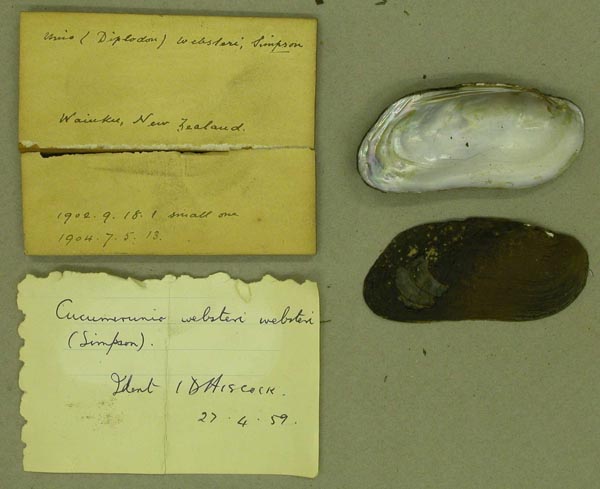 Unio (Diplodon) websteri, Simpson
Waiuku, New Zealand.
1902.9.18.1 small one
1904.7.5.13.
Cucumerunio websteri websteri
(Simpson).
Ident I D HISCOCK.
27.4.59.